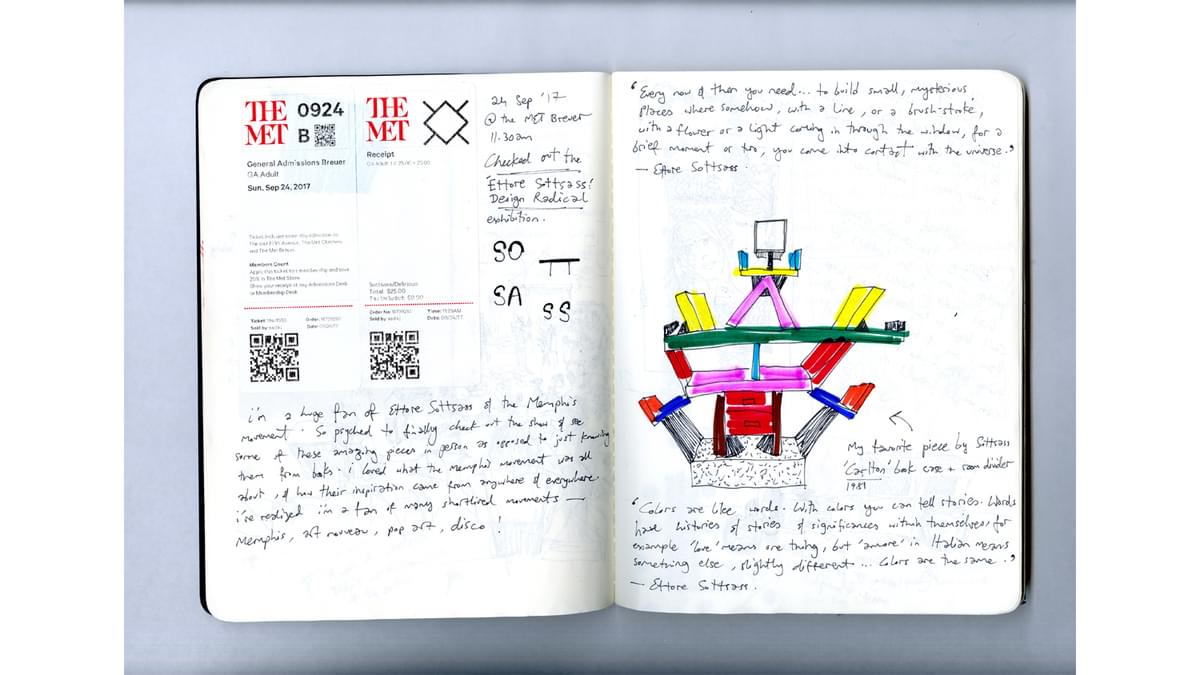 THE
MET
0924
B
General Admissions Breuer
GA Adult
Sun, Sep 24, 2017
Members Count
Apply this ticket to a membership and save
THE
MET
Receipt
Total: $25.00
24 Sep '17
@ the MET Breuer
11.30am
Checked out the
'Ettore Sottsass:
Design Radical
exhibition.
SO
TT
SA
SS
i'm a huge fan of Ettore Sottsass & the Memphis
movement. So psyched to finally check out the show & see
some of these amazing pieces in person as opposed to just knowing
them from books. i loved what the Memphis movement was all
about, & how their inspiration came from anywhere & everywhere.
i've realized i'm a fan of many shortlived movements —
Memphis, art nouveau, pop art, disco!
'Every now & then you need... to build small, mysterious
places where somehow, with a line, or a brush-stroke,
with a flower or a light coming in through the window, for a
brief moment or two, you come into contact with the universe.'
— Ettore Sottsass.
My favorite piece by Sottsass
'Carlton' book case + room divider
1981
'Colors are like words. With colors you can tell stories. Words
have histories & stories & significances within themselves, for
example 'love' means one thing, but 'amore' in Italian means
something else, slightly different ... Colors are the same.'
— Ettore Sottsass.